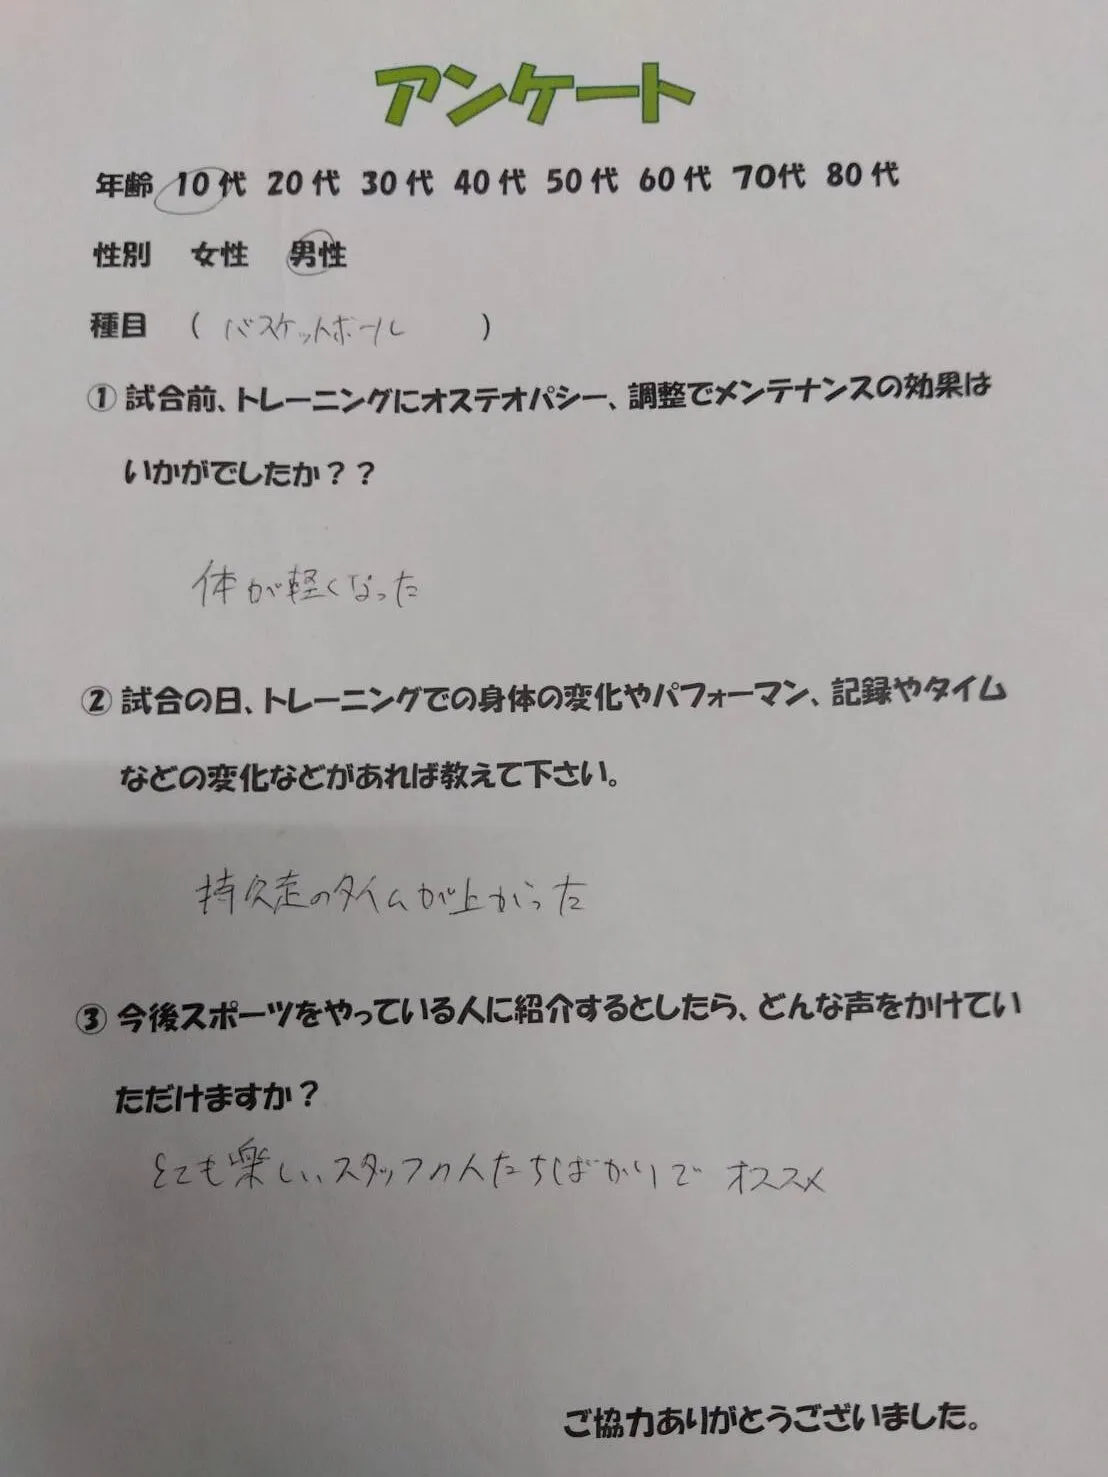 アンケート
年齢 10代 20代 30代 40代 50代 60代 70代 80代
性別 女性 男性
種目 ( バスケットボール )
① 試合前、トレーニングにオステオパシー、調整でメンテナンスの効果は
いかがでしたか？？
体が軽くなった
② 試合の日、トレーニングでの身体の変化やパフォーマン、記録やタイム
などの変化などがあれば教えて下さい。
持久走のタイムが上がった
③ 今後スポーツをやっている人に紹介するとしたら、どんな声をかけてい
ただけますか？
とても楽しいスタッフの人たちばかりで オススメ
ご協力ありがとうございました。